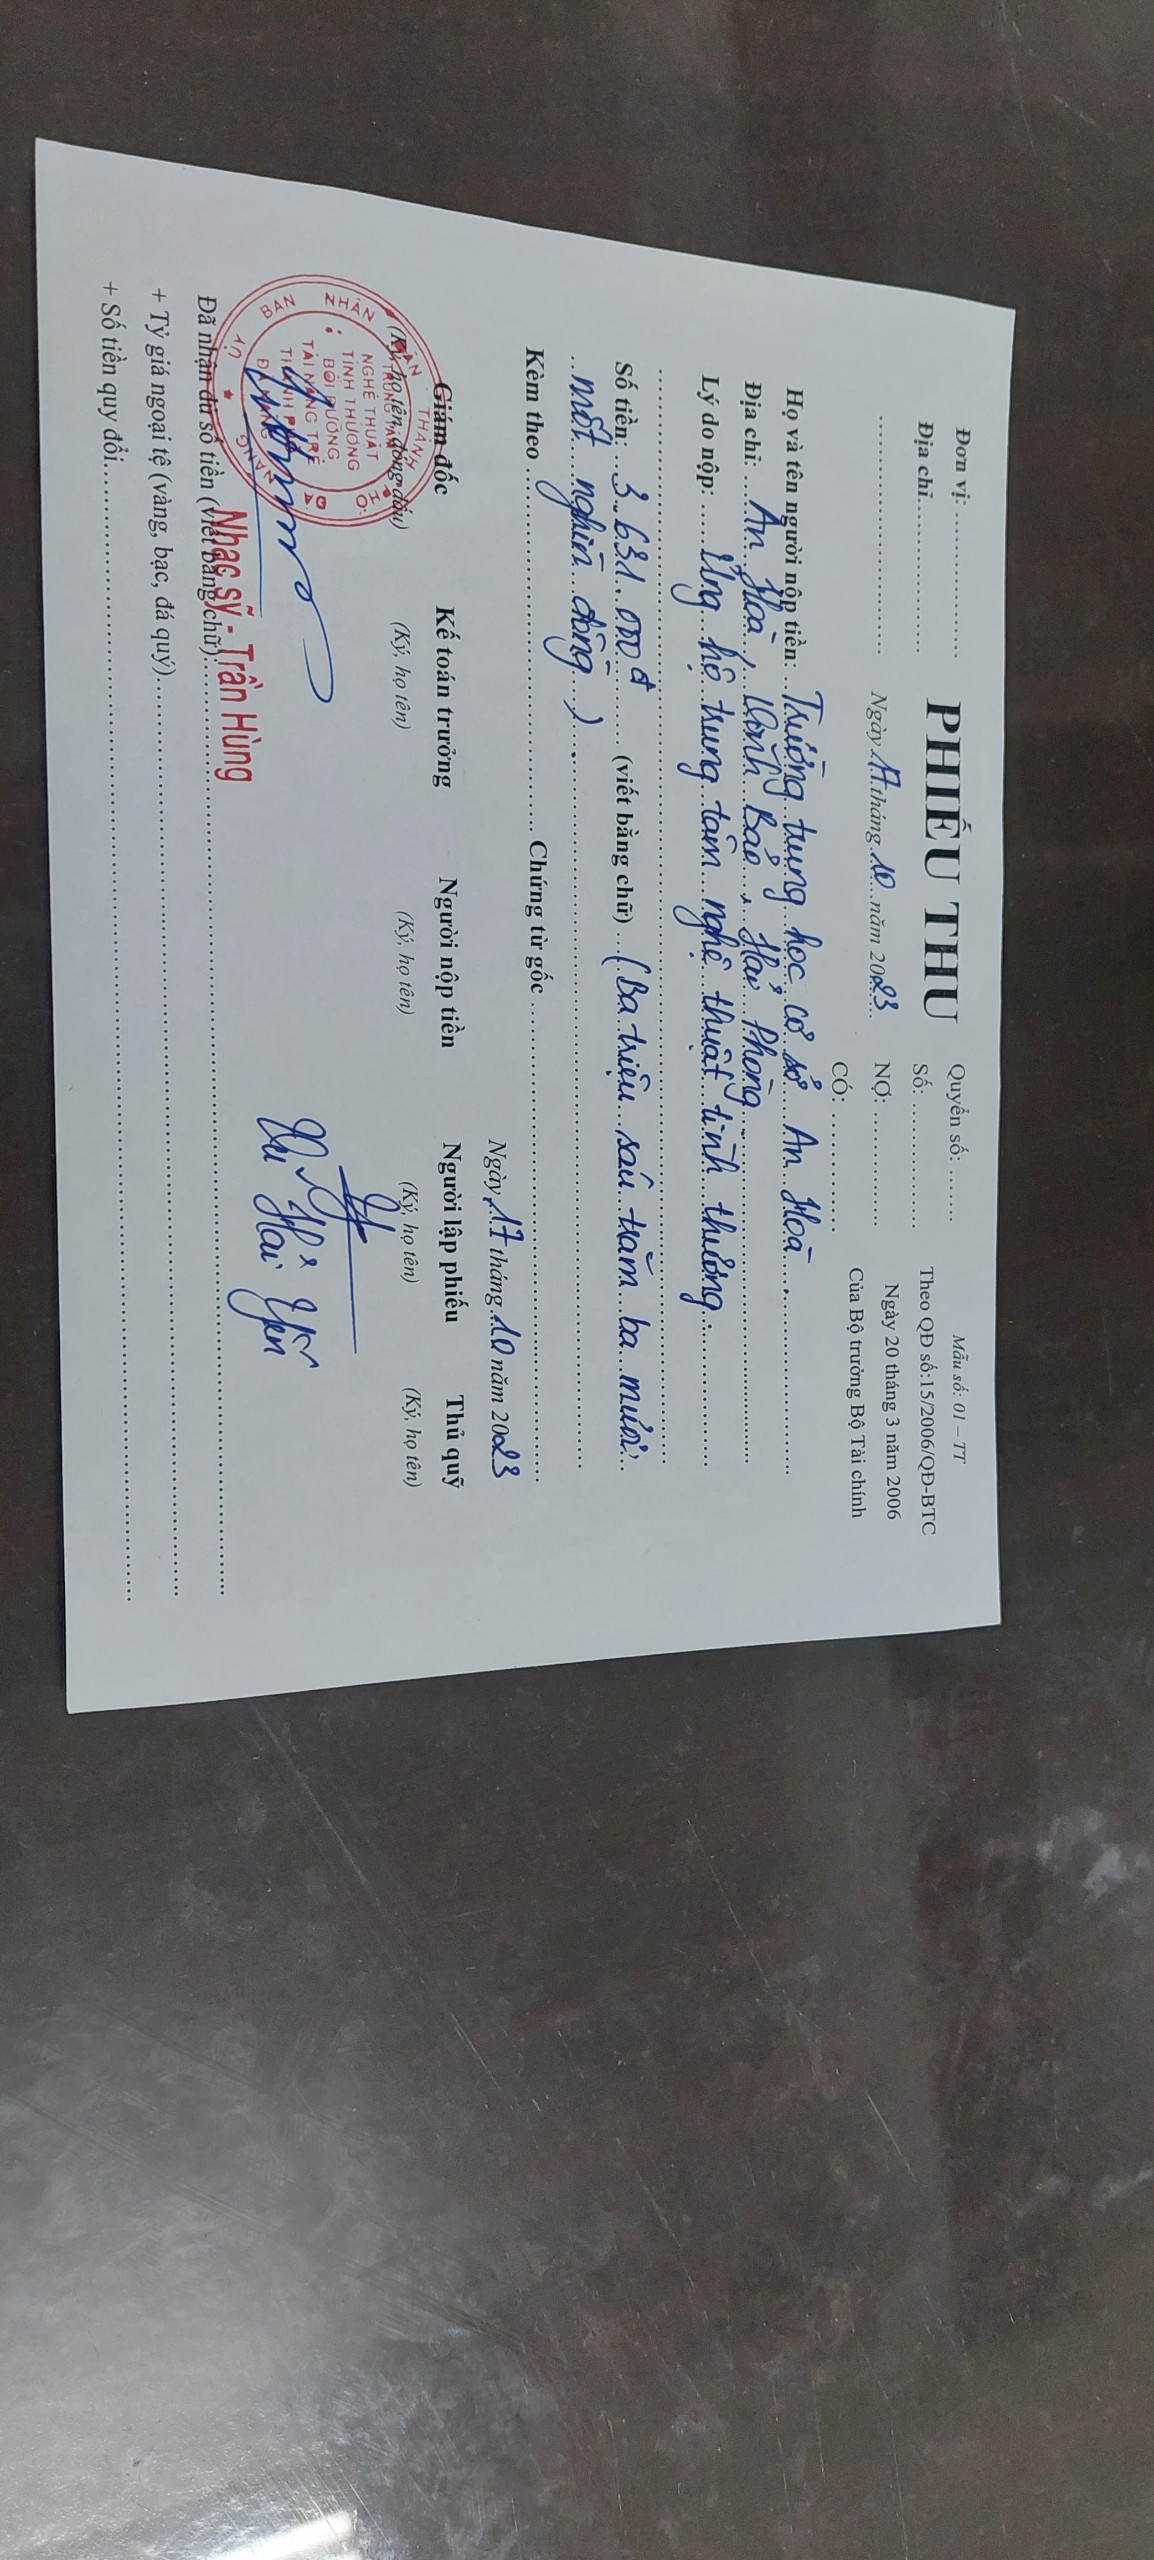 Đơn vị: ....................
Địa chỉ....................
PHIẾU THU
Ngày 17 tháng 10 năm 2023
Quyển số: ......
Số: ..............
NỢ: ..............
CÓ: ..............
Mẫu số: 01 – TT
Theo QĐ số:15/2006/QĐ-BTC
Ngày 20 tháng 3 năm 2006
Của Bộ trưởng Bộ Tài chính
Họ và tên người nộp tiền: Trường trung học cơ sở An Hoà
Địa chỉ: An Hoà, Vĩnh Bảo, Hải Phòng
Lý do nộp: Ủng hộ trung tâm nghệ thuật tình thương
Số tiền: 3.631.000đ (viết bằng chữ) (Ba triệu sáu trăm ba mươi
mốt nghìn đồng)
Kèm theo .................... Chứng từ gốc ....................
Ngày 17 tháng 10 năm 2023
Giám đốc Kế toán trưởng Người nộp tiền Người lập phiếu Thủ quỹ
(Ký, họ tên, đóng dấu) (Ký, họ tên) (Ký, họ tên) (Ký, họ tên) (Ký, họ tên)
BAN NHÂN
TRUNG TÂM
NGHỆ THUẬT
TÌNH THƯƠNG
BỒI DƯỠNG
TÀI NĂNG TRẺ
THÀNH PHỐ
ĐÀ NẴNG
Hải Yến
Nhạc sỹ - Trần Hùng
Đã nhận đủ số tiền (viết bằng chữ)....................
+ Tỷ giá ngoại tệ (vàng, bạc, đá quý)....................
+ Số tiền quy đổi....................